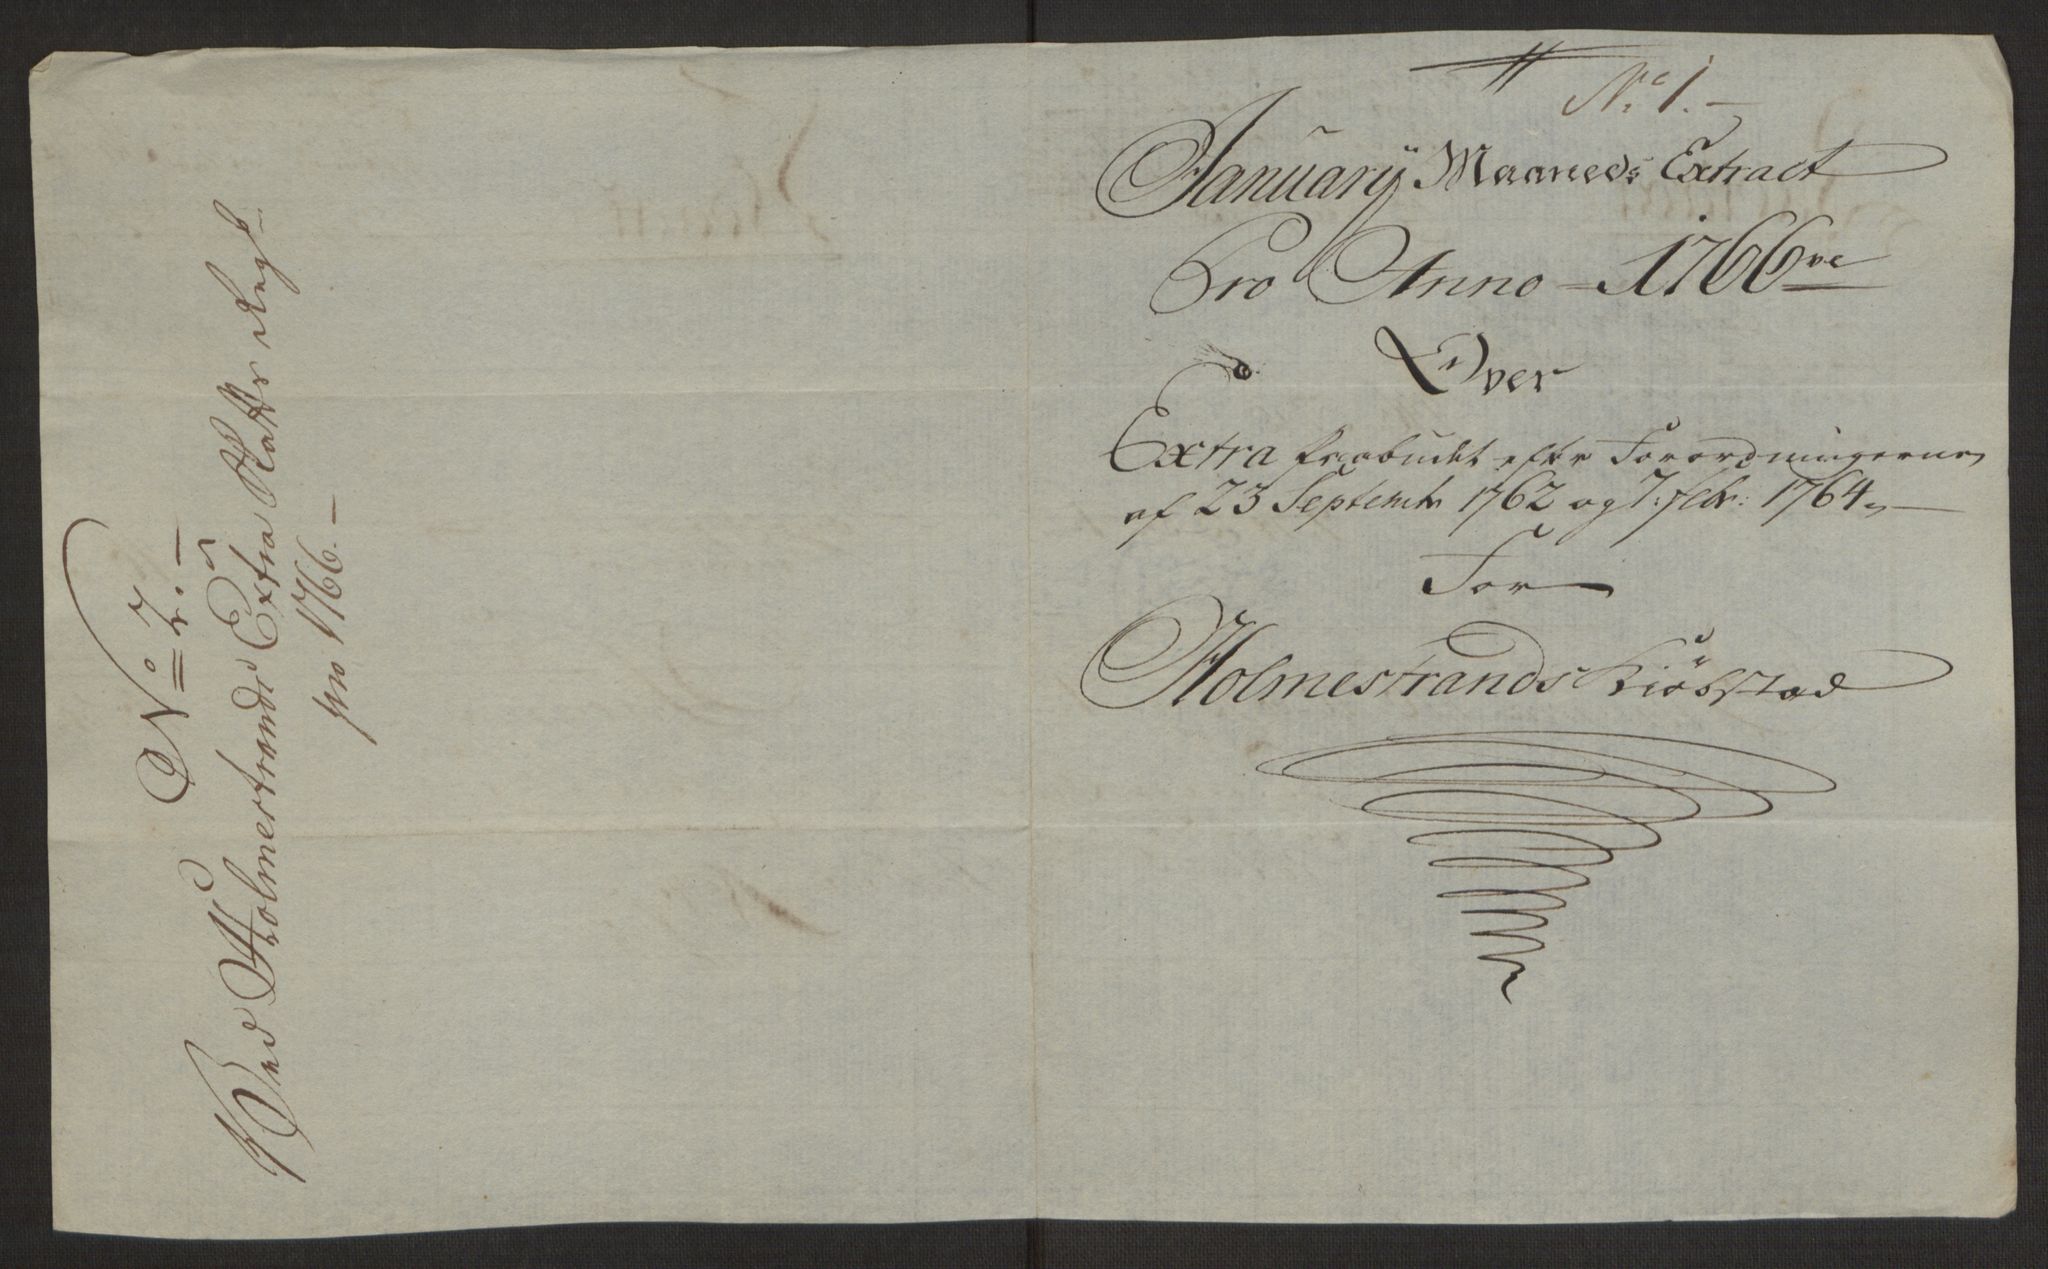 No 7. —
Ved Holmestrands Extra Skatts Regsk:
pro 1766. —
No 1. —
Januarÿ Maaneds Extract
Pro Anno 1766ve
Over
Extra Paabudet efter Forordningerne
af 23 Septembr 1762 og 7: febr: 1764,
For
Holmestrands Kiöbstad